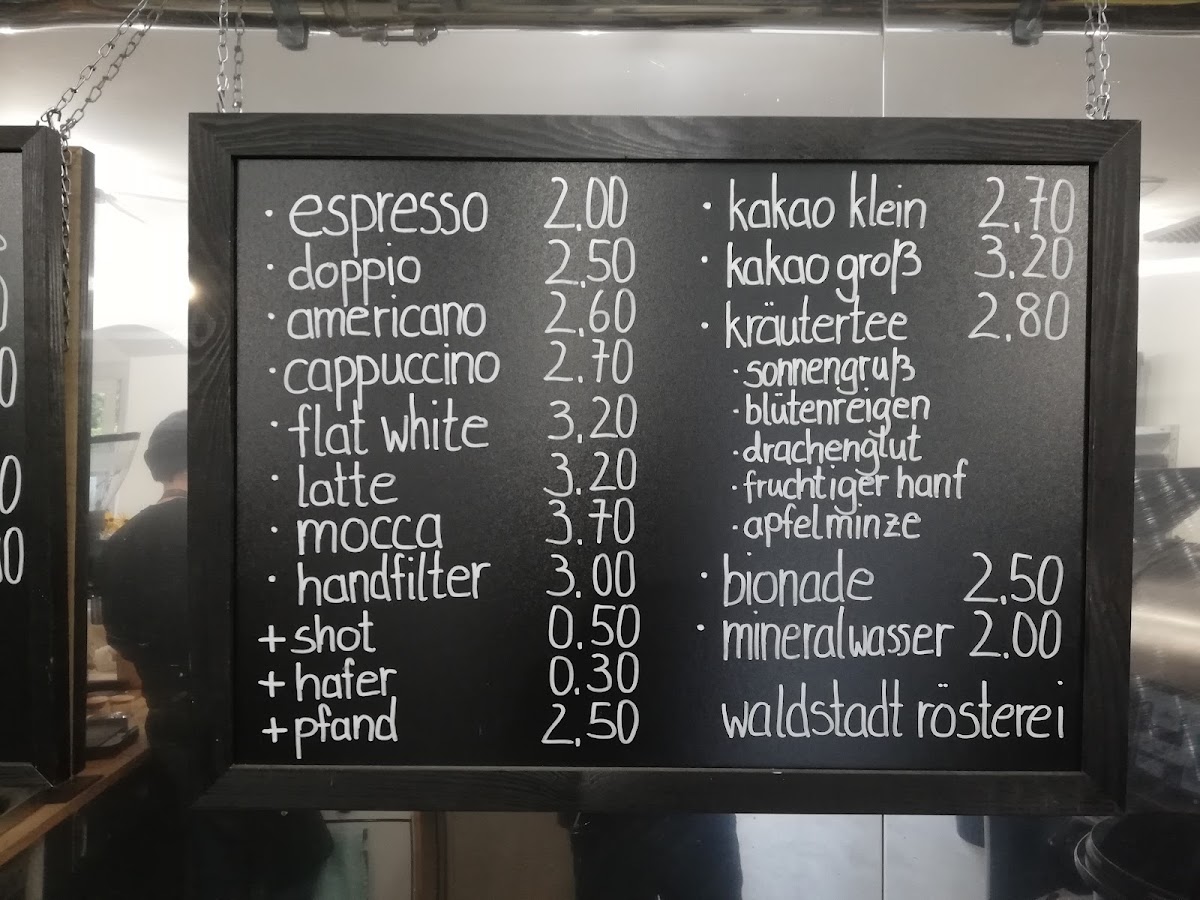 · espresso 2.00
· doppio 2.50
· americano 2.60
· cappuccino 2.70
· flat white 3.20
· latte 3.20
· mocca 3.70
· handfilter 3.00
+ shot 0.50
+ hafer 0.30
+ pfand 2.50
· kakao klein 2.70
· kakao groß 3.20
· kräutertee 2.80
· sonnengruß
· blütenreigen
· drachenglut
· fruchtiger hanf
· apfelminze
· bionade 2.50
· mineralwasser 2.00
waldstadt rösterei